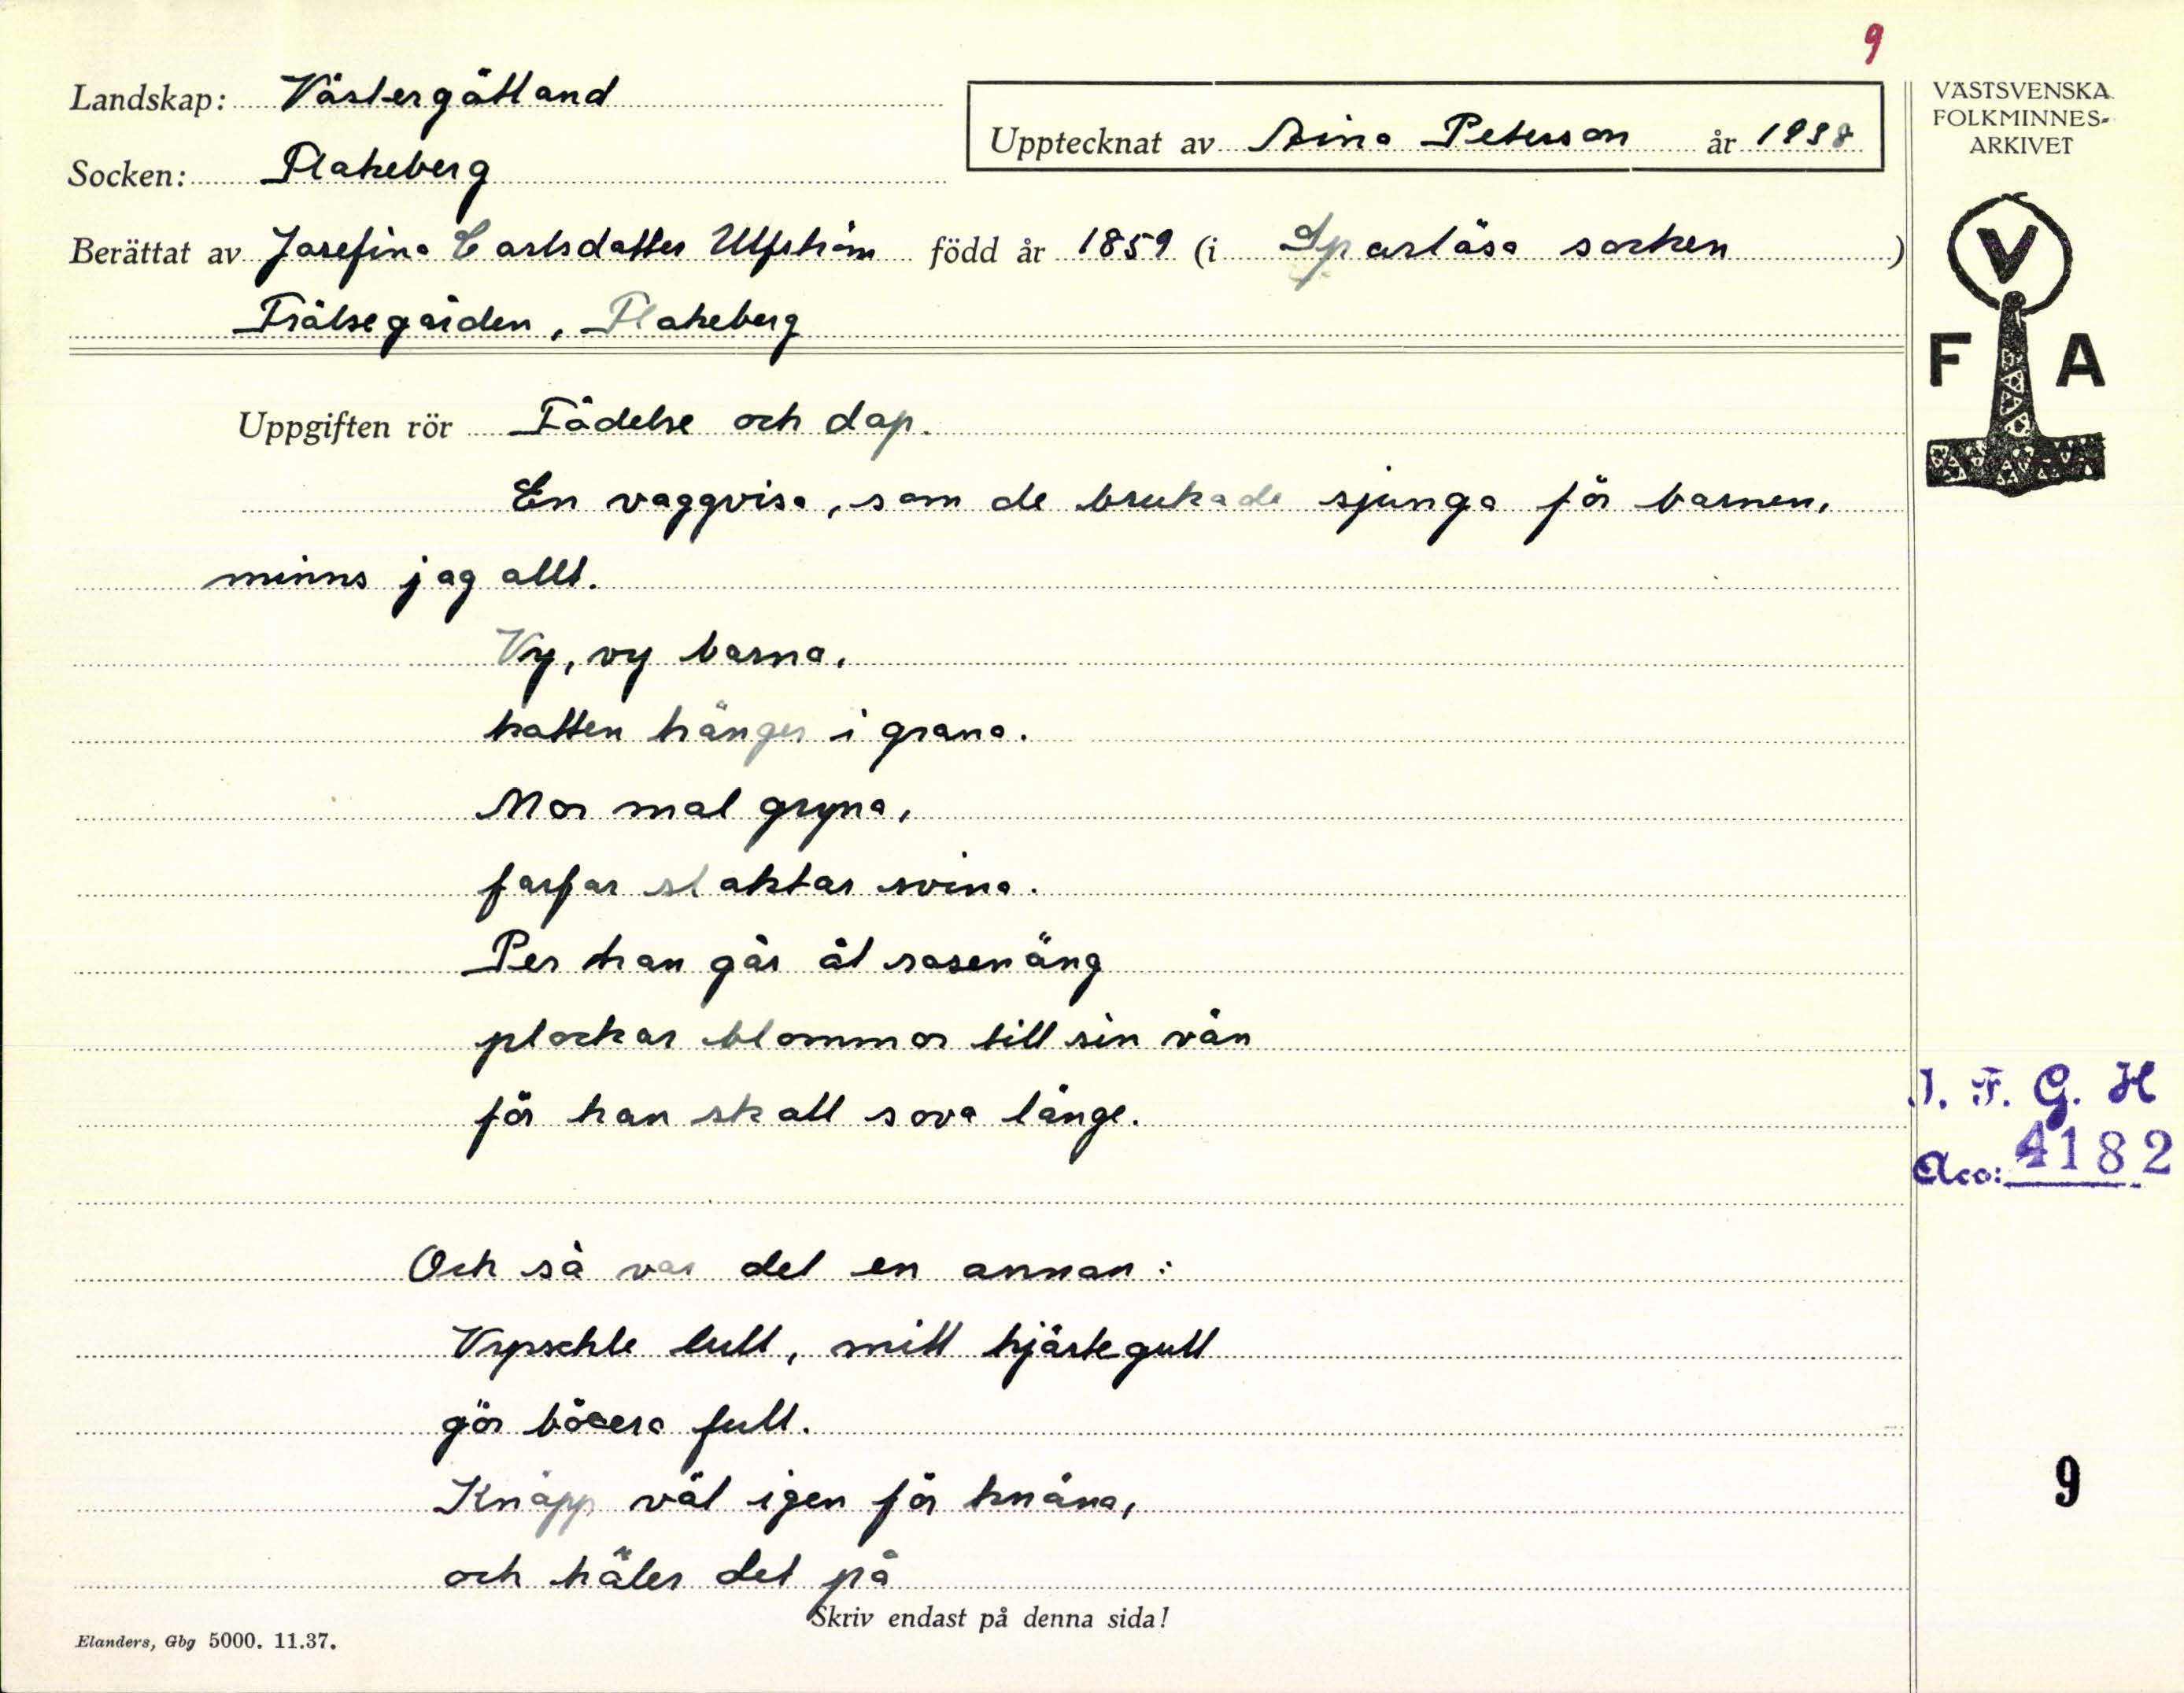 9
Landskap: Västergötland
Upptecknat av Stina Peterson år 1938
Socken: Plakeberg
Berättat av Josefina Carlsdotter Ulfström född år 1859 (i Sparlösa socken)
Frälsegården, Plakeberg
VÄSTSVENSKA
FOLKMINNES-
ARKIVET
V
F A
Uppgiften rör Födelse och dop.
En vaggvisa, som de brukade sjunga för barnen,
minns jag allt.
Vy, vy barna,
katten hänger i grana.
Mor mal gryna,
farfar slaktar svina.
Per han går åt rosenäng
plockar blommor till sin vän
för han skall sova länge.
I. F. G. H
Acc: 4182
Och så var det en annan:
lull, mitt hjärtegull
gör full.
Knäpp väl igen för knäna,
och håler det på
9
Skriv endast på denna sida!
Elanders, Gbg 5000. 11.37.